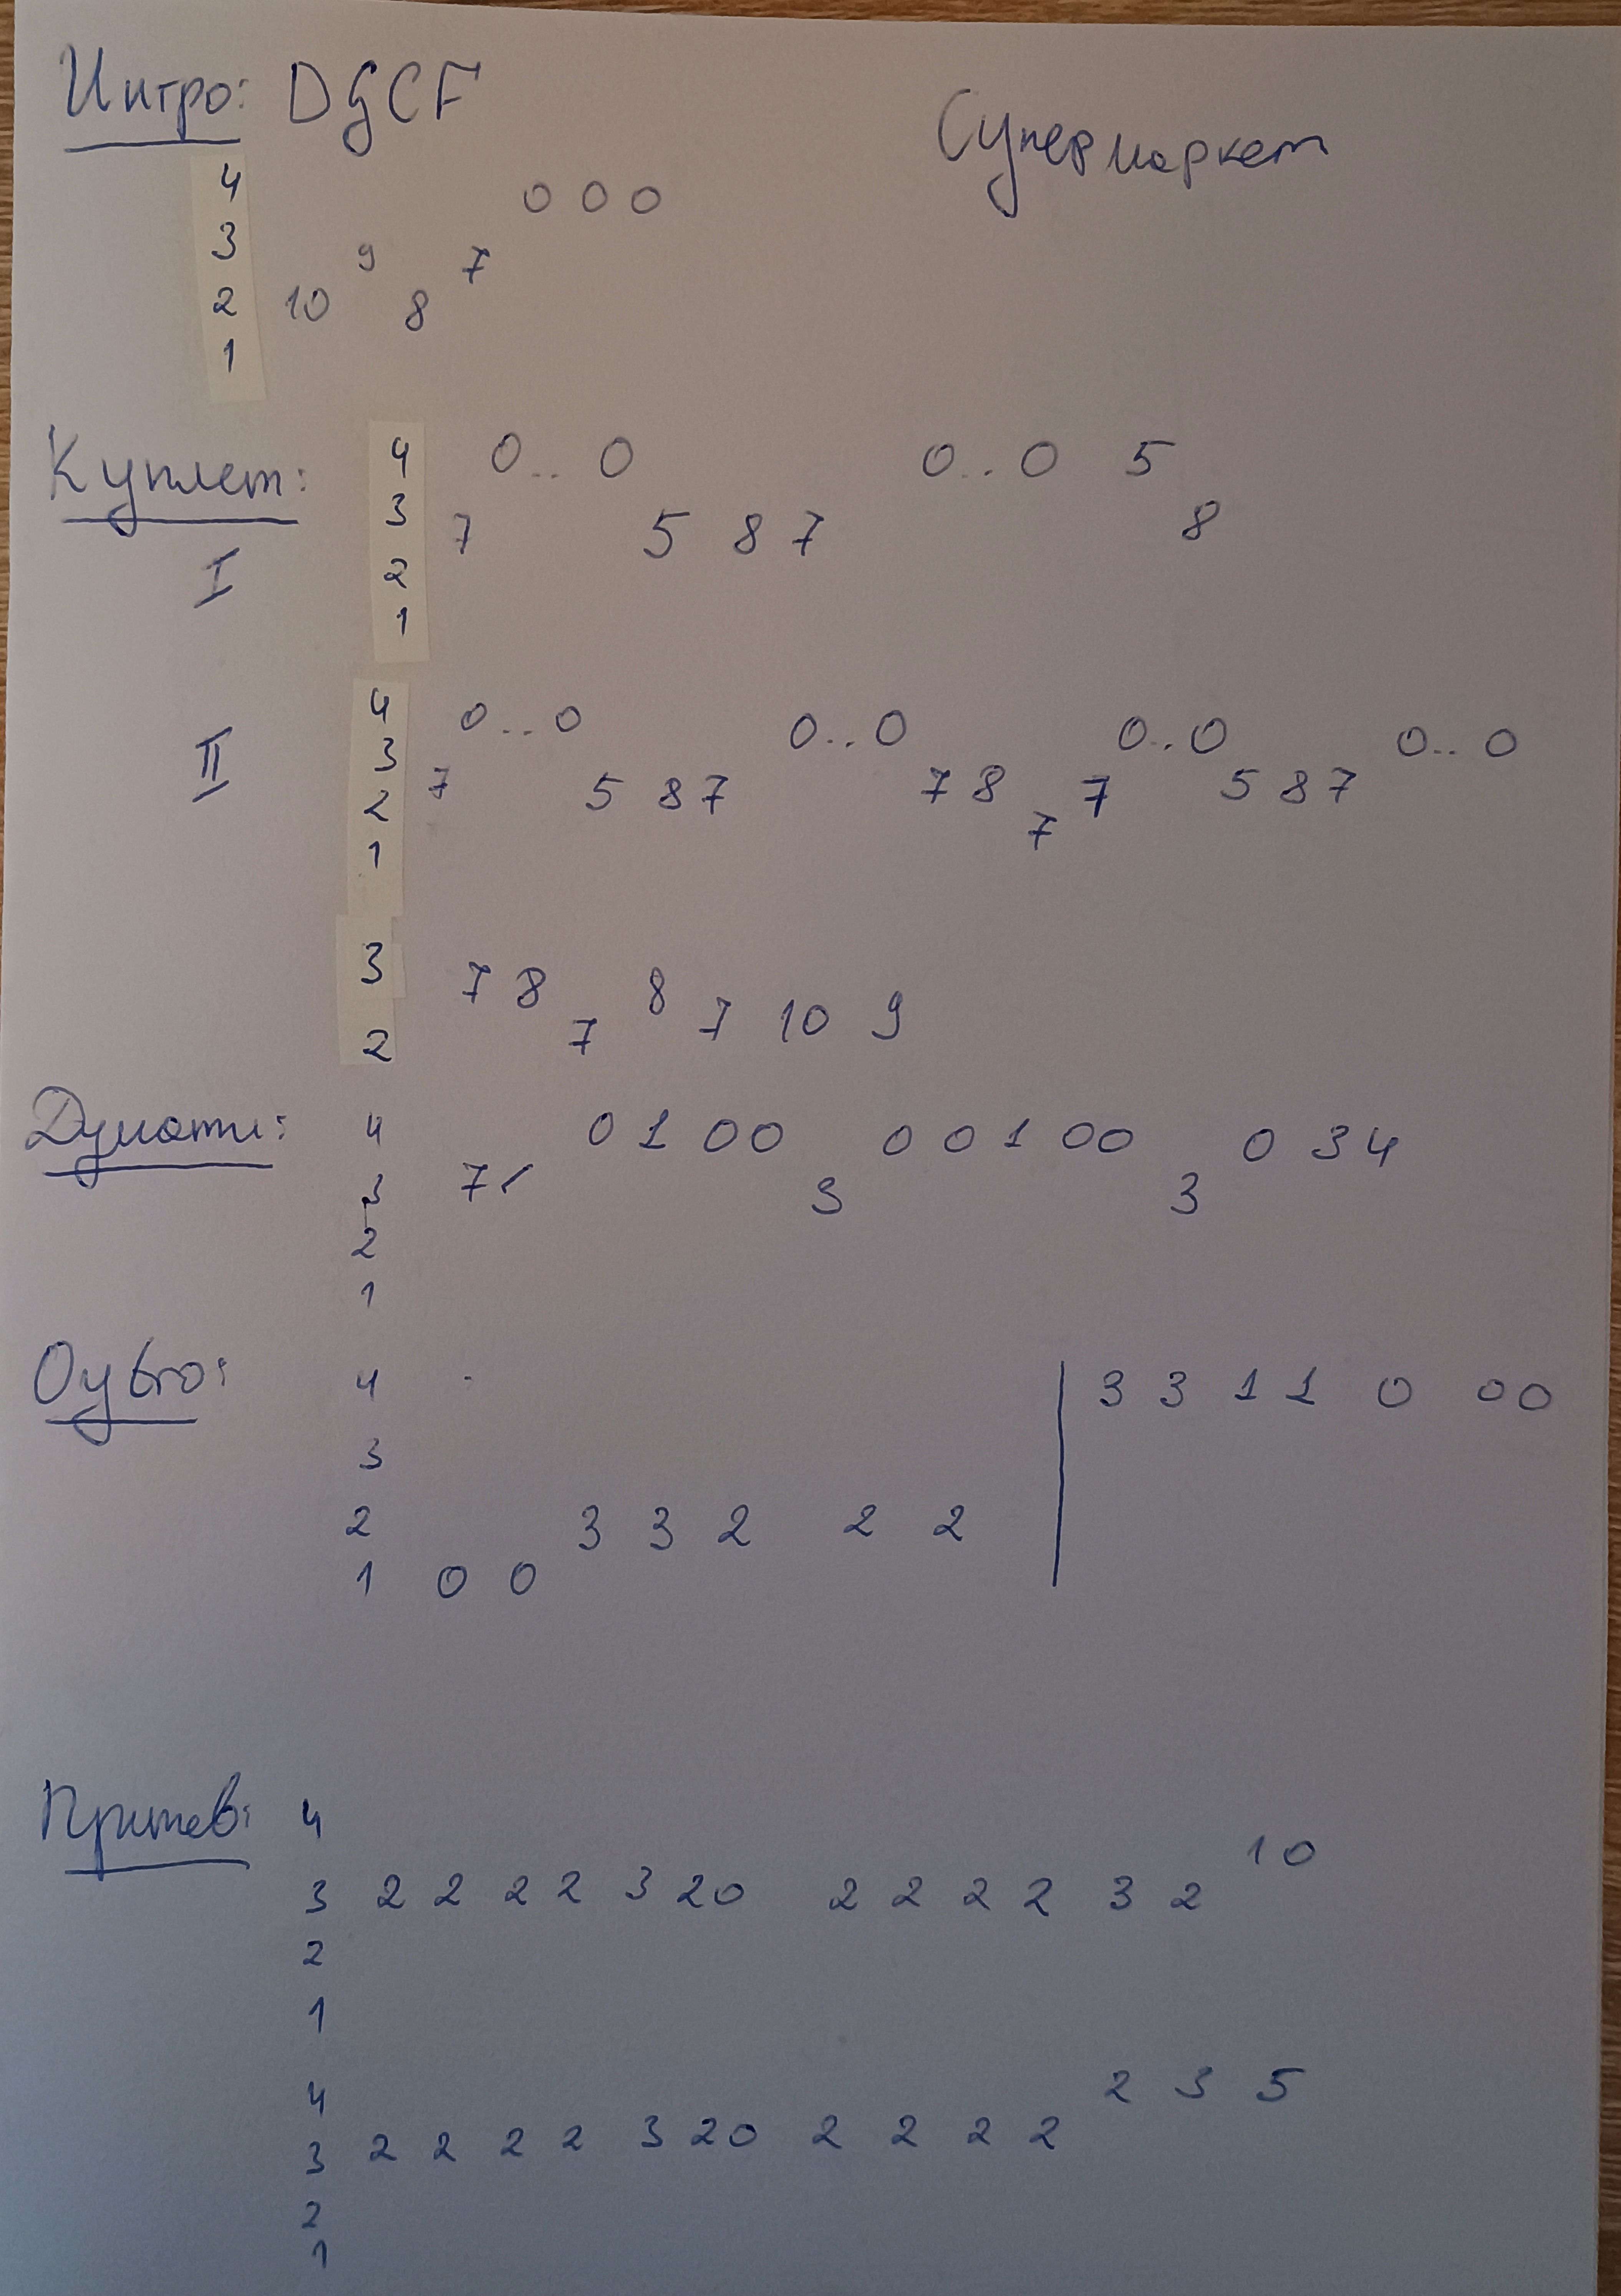 Интро: DGCF
Супермаркет
4 0 0 0
3 9 7
2 10 8
1
Куплет: 4 0..0 0..0 5
3 7 5 8 7 8
I 2
1
4 0...0 0...0 0..0 0..0
II 3 7 5 8 7 7 8 7 5 8 7
2 7
1
3 7 8 8
2 7 7 10 9
4 0 1 0 0 0 0 1 0 0 0 3 4
3 7 3 3
2
1
4 3 3 1 1 0 0 0
3
2 3 3 2 2 2
1 0 0
Припев: 4 1 0
3 2 2 2 2 3 2 0 2 2 2 2 3 2
2
1
4 2 3 5
3 2 2 2 2 3 2 0 2 2 2 2
2
1